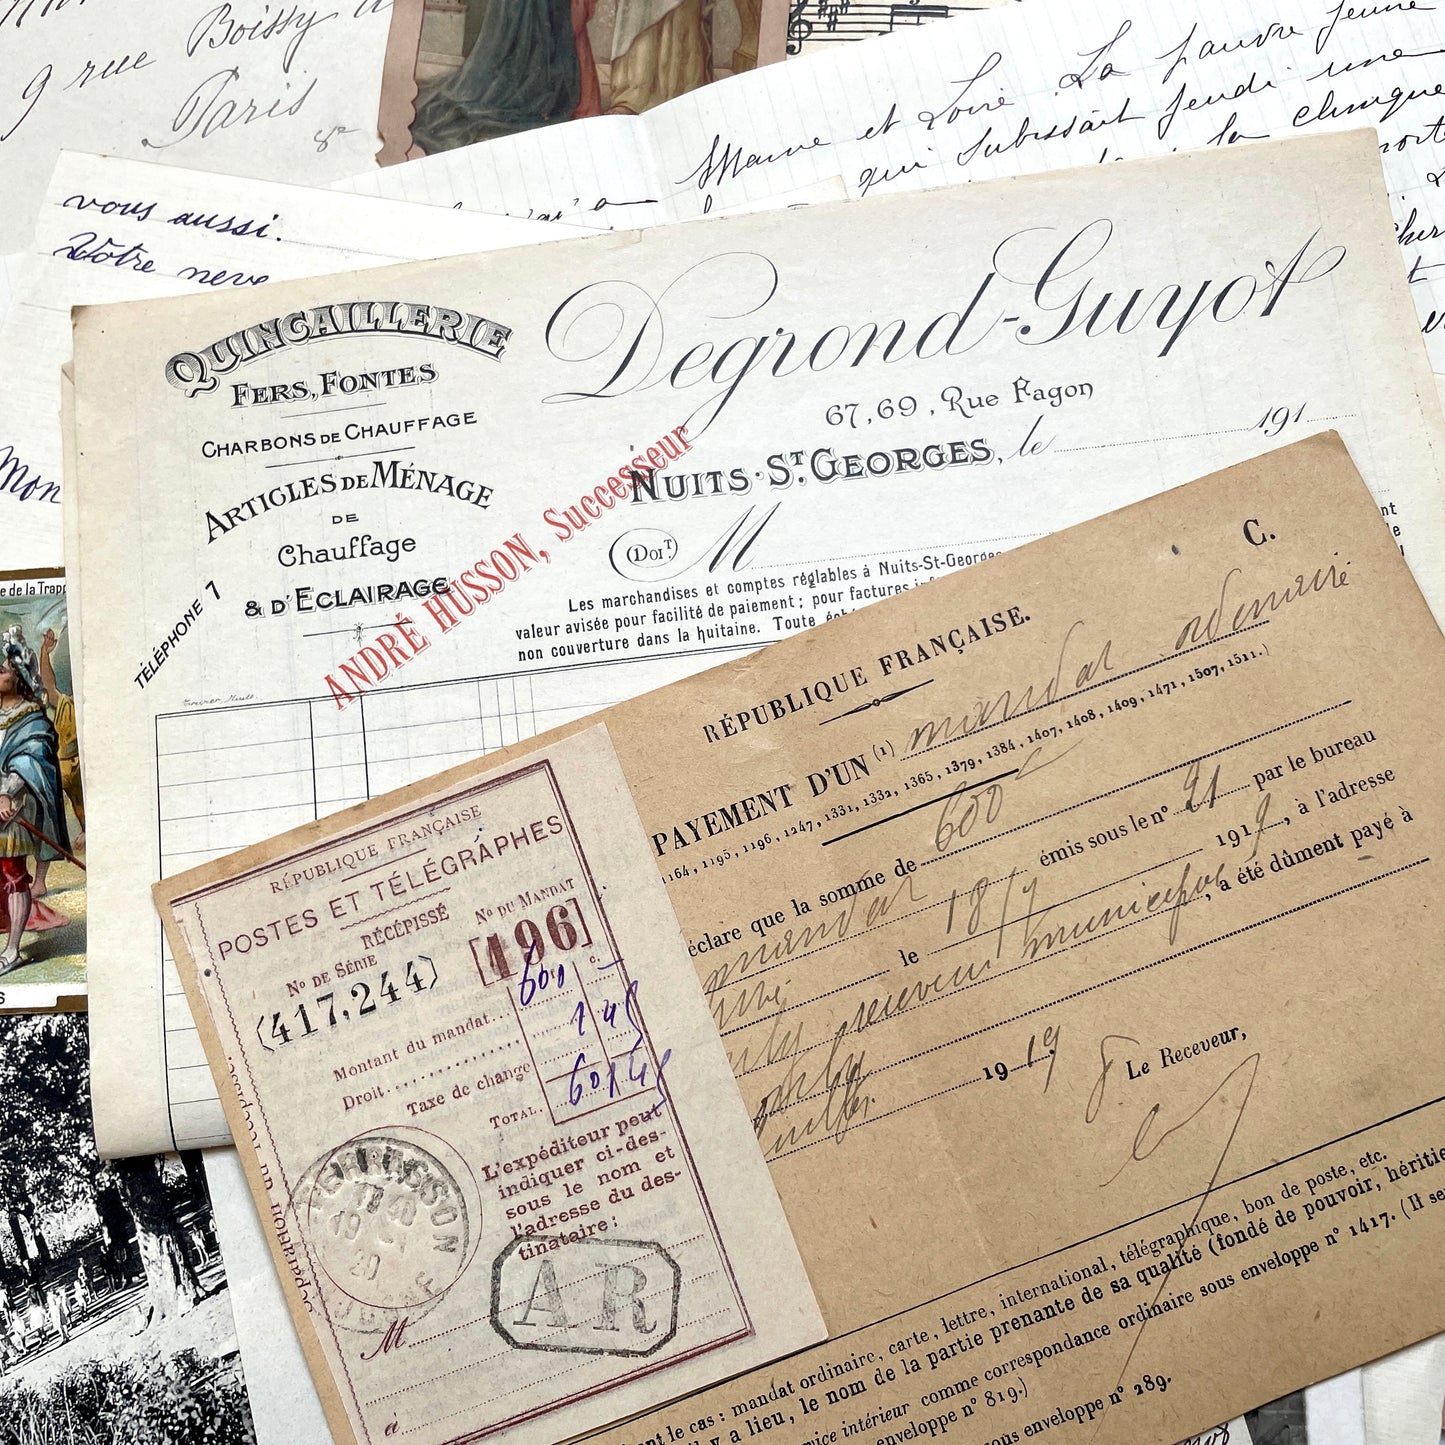 9 rue Boissy
Paris
Maine et Loire. La pauvre jeune
qui subissait jeudi une
la clinique
vous aussi.
Votre neve
Mon
QUINCAILLERIE
FERS, FONTES
CHARBONS DE CHAUFFAGE
ARTICLES DE MÉNAGE
DE
Chauffage
& D'ECLAIRAGE
TÉLÉPHONE 7
Degrond-Guyot
67, 69, Rue Fagon
NUITS-ST GEORGES, le 191
ANDRÉ HUSSON, Successeur
DOIT M
Les marchandises et comptes réglables à Nuits-St-Georges
valeur avisée pour facilité de paiement; pour factures
non couverture dans la huitaine. Toute
de la Trapp
C.
RÉPUBLIQUE FRANÇAISE.
PAYEMENT D'UN (1) mandat ordinaire
1164, 1195, 1196, 1247, 1331, 1332, 1365, 1379, 1384, 1407, 1408, 1409, 1471, 1507, 1511.)
éclare que la somme de 600
mandat émis sous le n° 21 par le bureau
le 18/9 1919, à l'adresse
receveur municipal, a été dûment payé à
19 19
Le Receveur,
RÉPUBLIQUE FRANÇAISE
POSTES ET TÉLÉGRAPHES
RÉCÉPISSÉ
N° DE SÉRIE N° DU MANDAT
(417,244) [196]
Montant du mandat... 600 —
Droit... 1 45
Taxe de change
TOTAL. 601 45
L'expéditeur peut
indiquer ci-des-
sous le nom et
l'adresse du des-
tinataire:
AR
M
à
ant le cas : mandat ordinaire, carte, lettre, international, télégraphique, bon de poste, etc.
y a lieu, le nom de la partie prenante de sa qualité (fondé de pouvoir, hériti
vice intérieur comme correspondance ordinaire sous enveloppe n° 1417. (Il se
enveloppe n° 819.)
sous enveloppe n° 289.